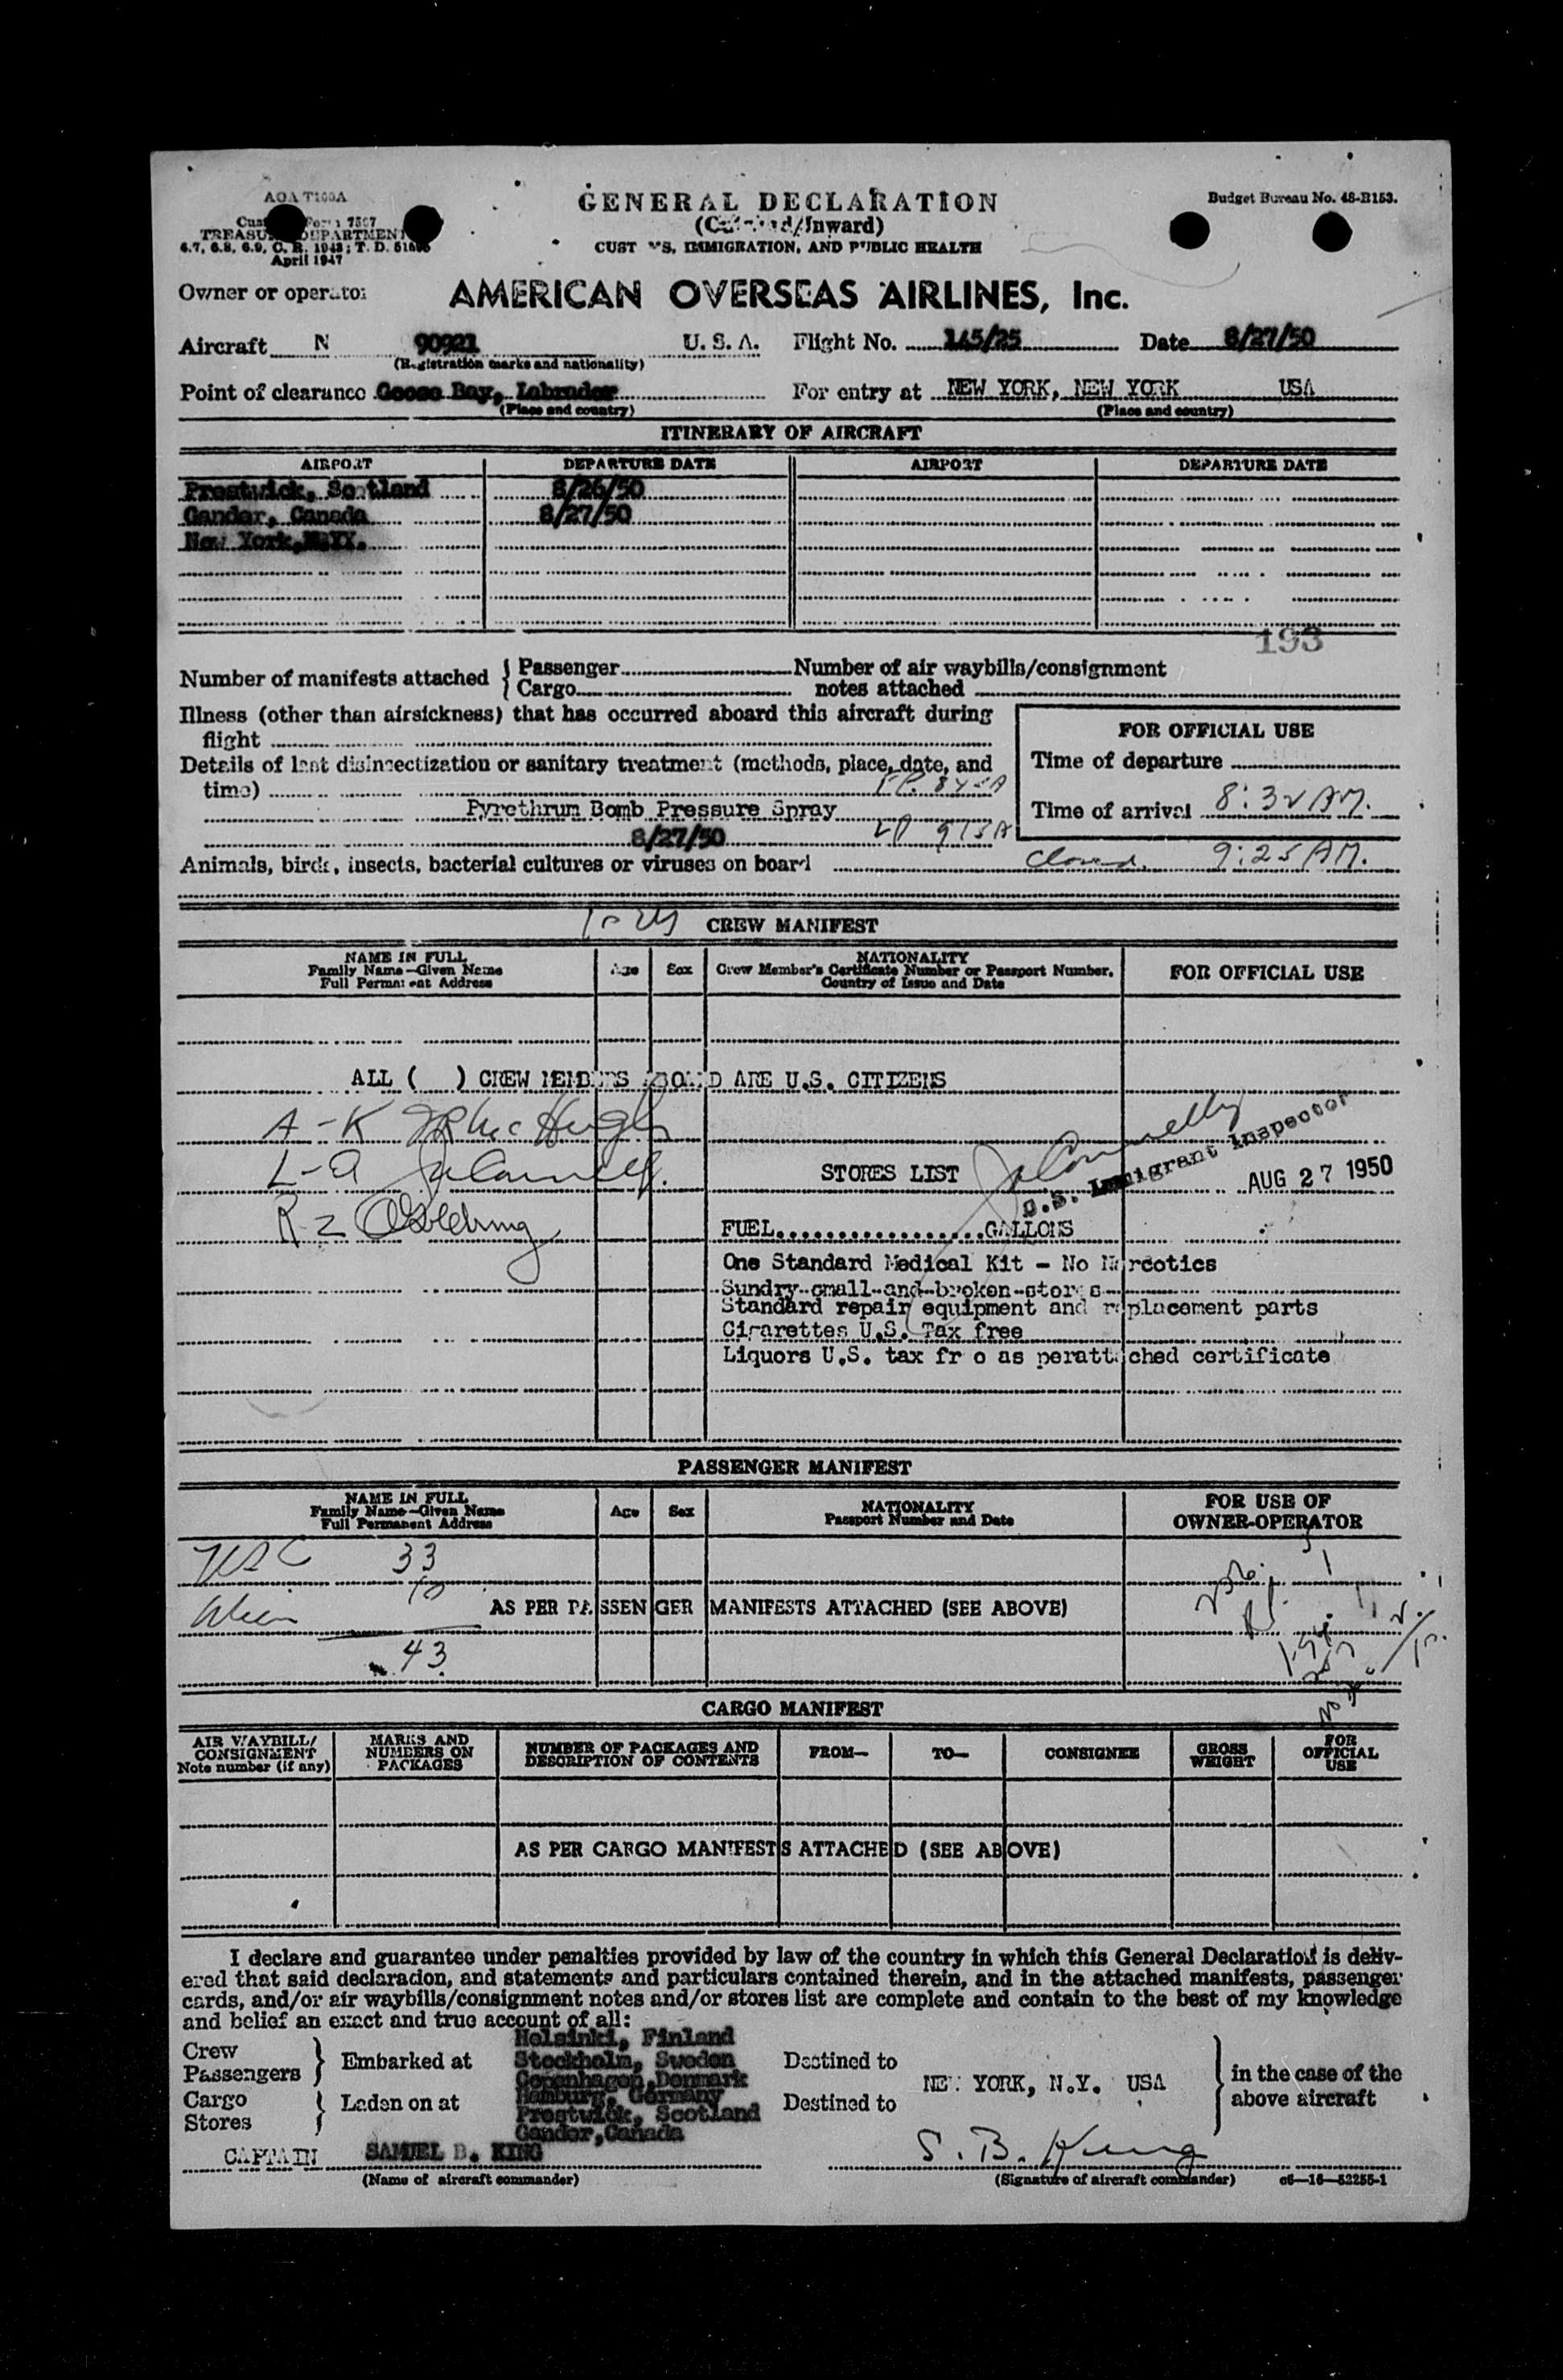 AOA T100A
GENERAL DECLARATION
Budget Bureau No. 48-R153.
(Outward/Inward)
TREASURY DEPARTMENT
CUSTOMS, IMMIGRATION, AND PUBLIC HEALTH
April 1947
Owner or operator
AMERICAN OVERSEAS AIRLINES, Inc.
Aircraft N 90921 U. S. A. Flight No. 145/25 Date 8/27/50
(Registration marks and nationality)
Point of clearance Goose Bay, Labrador For entry at NEW YORK, NEW YORK USA
(Place and country) (Place and country)
ITINERARY OF AIRCRAFT
AIRPORT DEPARTURE DATE AIRPORT DEPARTURE DATE
Prestwick, Scotland 8/26/50
Gander, Canada 8/27/50
New York,
193
Number of manifests attached { Passenger Number of air waybills/consignment
Cargo notes attached
Illness (other than airsickness) that has occurred aboard this aircraft during
flight
FOR OFFICIAL USE
Details of last disinsectization or sanitary treatment (methods, place, date, and
time)
Time of departure
Pyrethrum Bomb Pressure Spray
Time of arrival 8:32 AM.
8/27/50
Animals, birds, insects, bacterial cultures or viruses on board
Closed 9:25 AM.
CREW MANIFEST
NAME IN FULL
Family Name—Given Name
Full Permanent Address
Age Sex
NATIONALITY
Crew Member's Certificate Number or Passport Number,
Country of Issue and Date
FOR OFFICIAL USE
ALL ( ) CREW MEMBERS ABOARD ARE U.S. CITIZENS
A-K
L-Q
R-Z
STORES LIST
U.S. Immigrant Inspector
AUG 27 1950
FUEL.................GALLONS
One Standard Medical Kit - No Narcotics
Sundry small and broken stores
Standard repair equipment and replacement parts
Cigarettes U.S. Tax free
Liquors U.S. tax fr o as perattached certificate
PASSENGER MANIFEST
NAME IN FULL
Family Name—Given Name
Full Permanent Address
Age Sex
NATIONALITY
Passport Number and Date
FOR USE OF
OWNER-OPERATOR
USC 33
Alien 10
AS PER PASSENGER MANIFESTS ATTACHED (SEE ABOVE)
43
CARGO MANIFEST
AIR WAYBILL/
CONSIGNMENT
Note number (if any)
MARKS AND
NUMBERS ON
PACKAGES
NUMBER OF PACKAGES AND
DESCRIPTION OF CONTENTS
FROM— TO— CONSIGNEE
GROSS
WEIGHT
FOR
OFFICIAL
USE
AS PER CARGO MANIFESTS ATTACHED (SEE ABOVE)
I declare and guarantee under penalties provided by law of the country in which this General Declaration is deliv-
ered that said declaration, and statements and particulars contained therein, and in the attached manifests, passenger
cards, and/or air waybills/consignment notes and/or stores list are complete and contain to the best of my knowledge
and belief an exact and true account of all:
Crew
Passengers } Embarked at
Cargo
Stores } Laden on at
Helsinki, Finland
Stockholm, Sweden
Copenhagen,Denmark
Hamburg, Germany
Prestwick, Scotland
Gander,Canada
Destined to
NEW YORK, N.Y. USA
Destined to
} in the case of the
above aircraft
CAPTAIN SAMUEL B. KING
S. B. King
(Name of aircraft commander) (Signature of aircraft commander) c6—16—52255-1